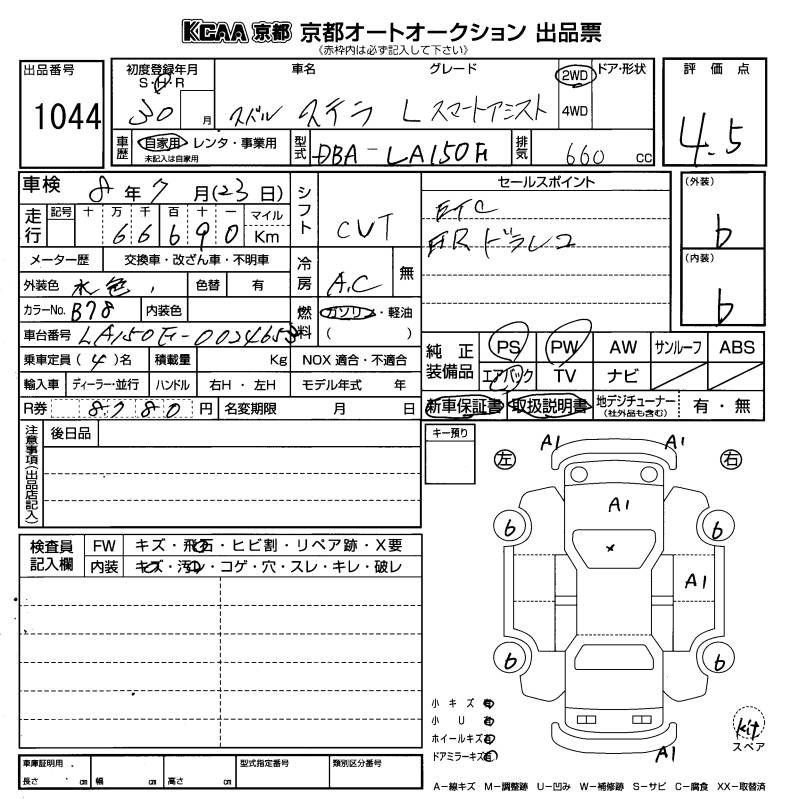 KCAA 京都 京都オートオークション 出品票
《赤枠内は必ず記入して下さい》
出品番号
1044
初度登録年月
S・H・R
30 月
車名
スバル ステラ
グレード
L スマートアシスト
2WD
4WD
ドア・形状
評価点
4.5
車歴
自家用・レンタ・事業用
未記入は自家用
型式
DBA-LA150F
排気
660 cc
車検
8年7月(23日)
走行
記号 十 万 千 百 十 一
6 6 6 9 0
マイル
Km
シフト
CVT
セールスポイント
ETC
前R ドラレコ
(外装)
b
(内装)
b
メーター歴 交換車・改ざん車・不明車
外装色 水色 色替 有
冷房
A.C
無
カラーNo. B78 内装色
燃料
ガソリン・軽油
( )
車台番号 LA150F-0024653
乗車定員(4)名 積載量 Kg NOX 適合・不適合
輸入車 ディーラー・並行 ハンドル 右H・左H モデル年式 年
R券 8780 円 名変期限 月 日
純正装備品
PS PW AW サンルーフ ABS
エアバック TV ナビ
新車保証書 取扱説明書 地デジチューナー(社外品も含む) 有・無
注意事項(出品店記入)
後日品
キー預り
左 右
A1 A1
A1
b b
A1
b b
A1
検査員記入欄
FW キズ・飛石・ヒビ割・リペア跡・X要
内装 キズ・汚レ・コゲ・穴・スレ・キレ・破レ
小キズ有
小U有
ホイールキズ有
ドアミラーキズ有
kit
スペア
車庫証明用
長さ cm 幅 cm 高さ cm
型式指定番号
類別区分番号
A−線キズ M−調整跡 U−凹み W−補修跡 S−サビ C−腐食 XX−取替済